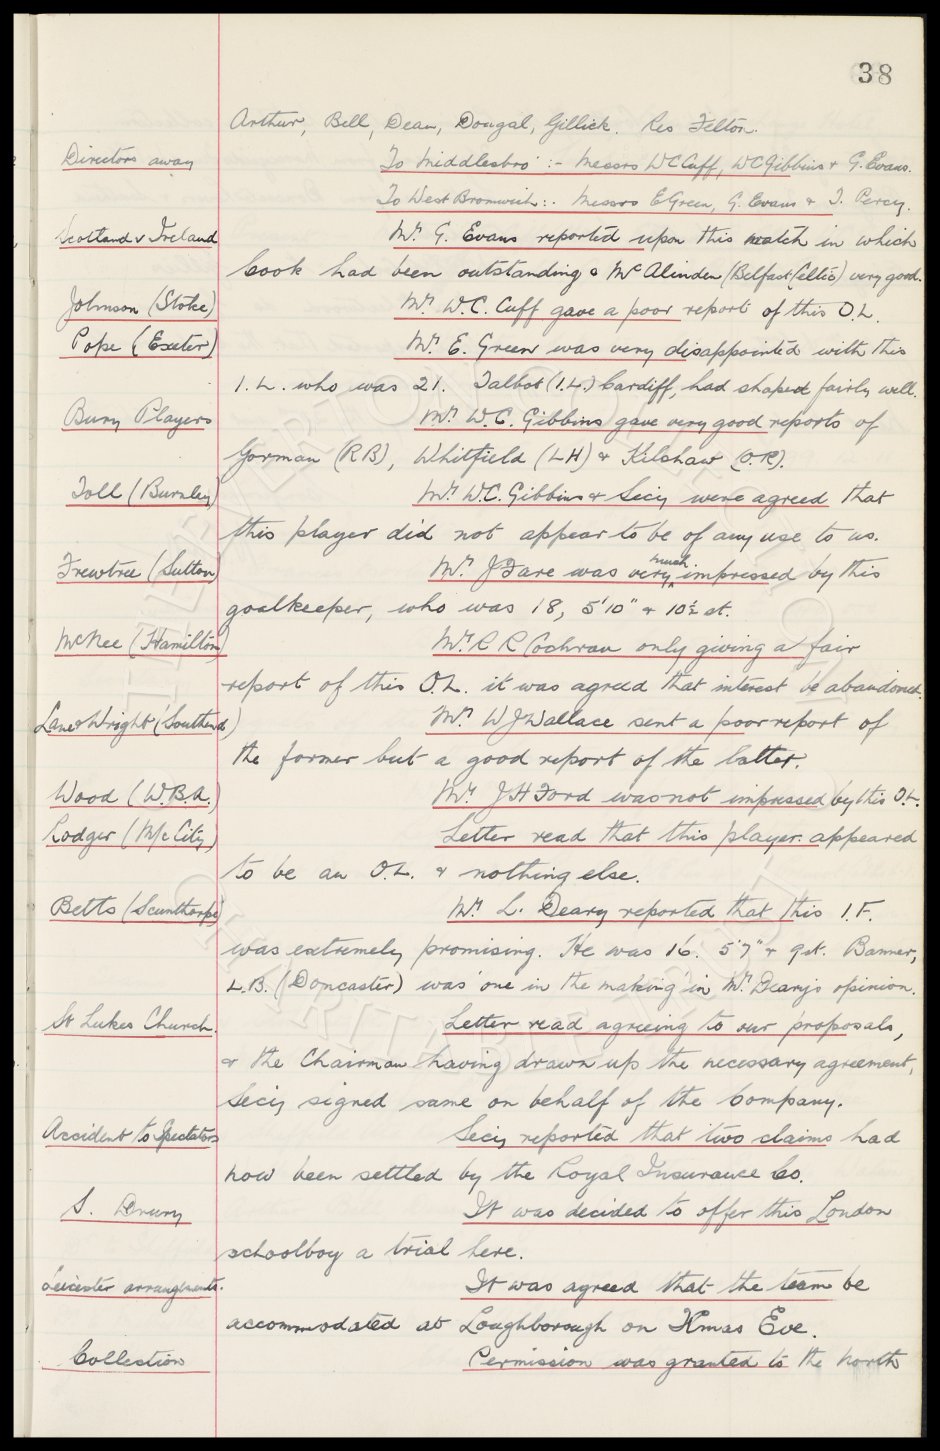 38
Arthur, Bell, Dean, Dougal, Gillick. Res Felton.
Directors away To Middlesbro' :- Messrs WC Cuff, WC Gibbins & G. Evans.
To West Bromwich :- Messrs E Green, G. Evans & T. Percy.
Scotland v Ireland Mr. G. Evans reported upon this match in which
Cook had been outstanding & McAlinden (Belfast Celtic) very good.
Johnson (Stoke) Mr. W.C. Cuff gave a poor report of this O.L.
Pope (Exeter) Mr. E. Green was very disappointed with this
I.L. who was 21. Talbot (I.L.) Cardiff, had shaped fairly well.
Bury Players Mr. W.C. Gibbins gave very good reports of
Gorman (RB), Whitfield (LH) & Kilshaw (O.R).
Toll (Burnley) Mr. W.C. Gibbins & Secy were agreed that
this player did not appear to be of any use to us.
Frewtree (Sutton) Mr. J Fare was very much impressed by this
goalkeeper, who was 18, 5'10" & 10½ st.
McNee (Hamilton) Mr. R R Cochran only giving a fair
report of this O.L. it was agreed that interest be abandoned.
Lane & Wright (Southend) Mr. W J Wallace sent a poor report of
the former but a good report of the latter.
Wood (W.B.A.) Mr. J H Ford was not impressed by this I.L.
Rodger (M/c City) Letter read that this player appeared
to be an O.L. & nothing else.
Betts (Scunthorpe) Mr. L. Deary reported that this I.F.
was extremely promising. He was 16. 5'7" & 9 st. Banner,
L.B. (Doncaster) was 'one in the making' in Mr. Deary's opinion.
St Lukes Church. Letter read agreeing to our proposals,
& the Chairman having drawn up the necessary agreement,
Secy signed same on behalf of the Company.
Accident to Spectators Secy reported that two claims had
now been settled by the Royal Insurance Co.
S. Drury It was decided to offer this London
schoolboy a trial here.
Leicester arrangements. It was agreed that the team be
accommodated at Loughborough on Xmas Eve.
Collection Permission was granted to the North